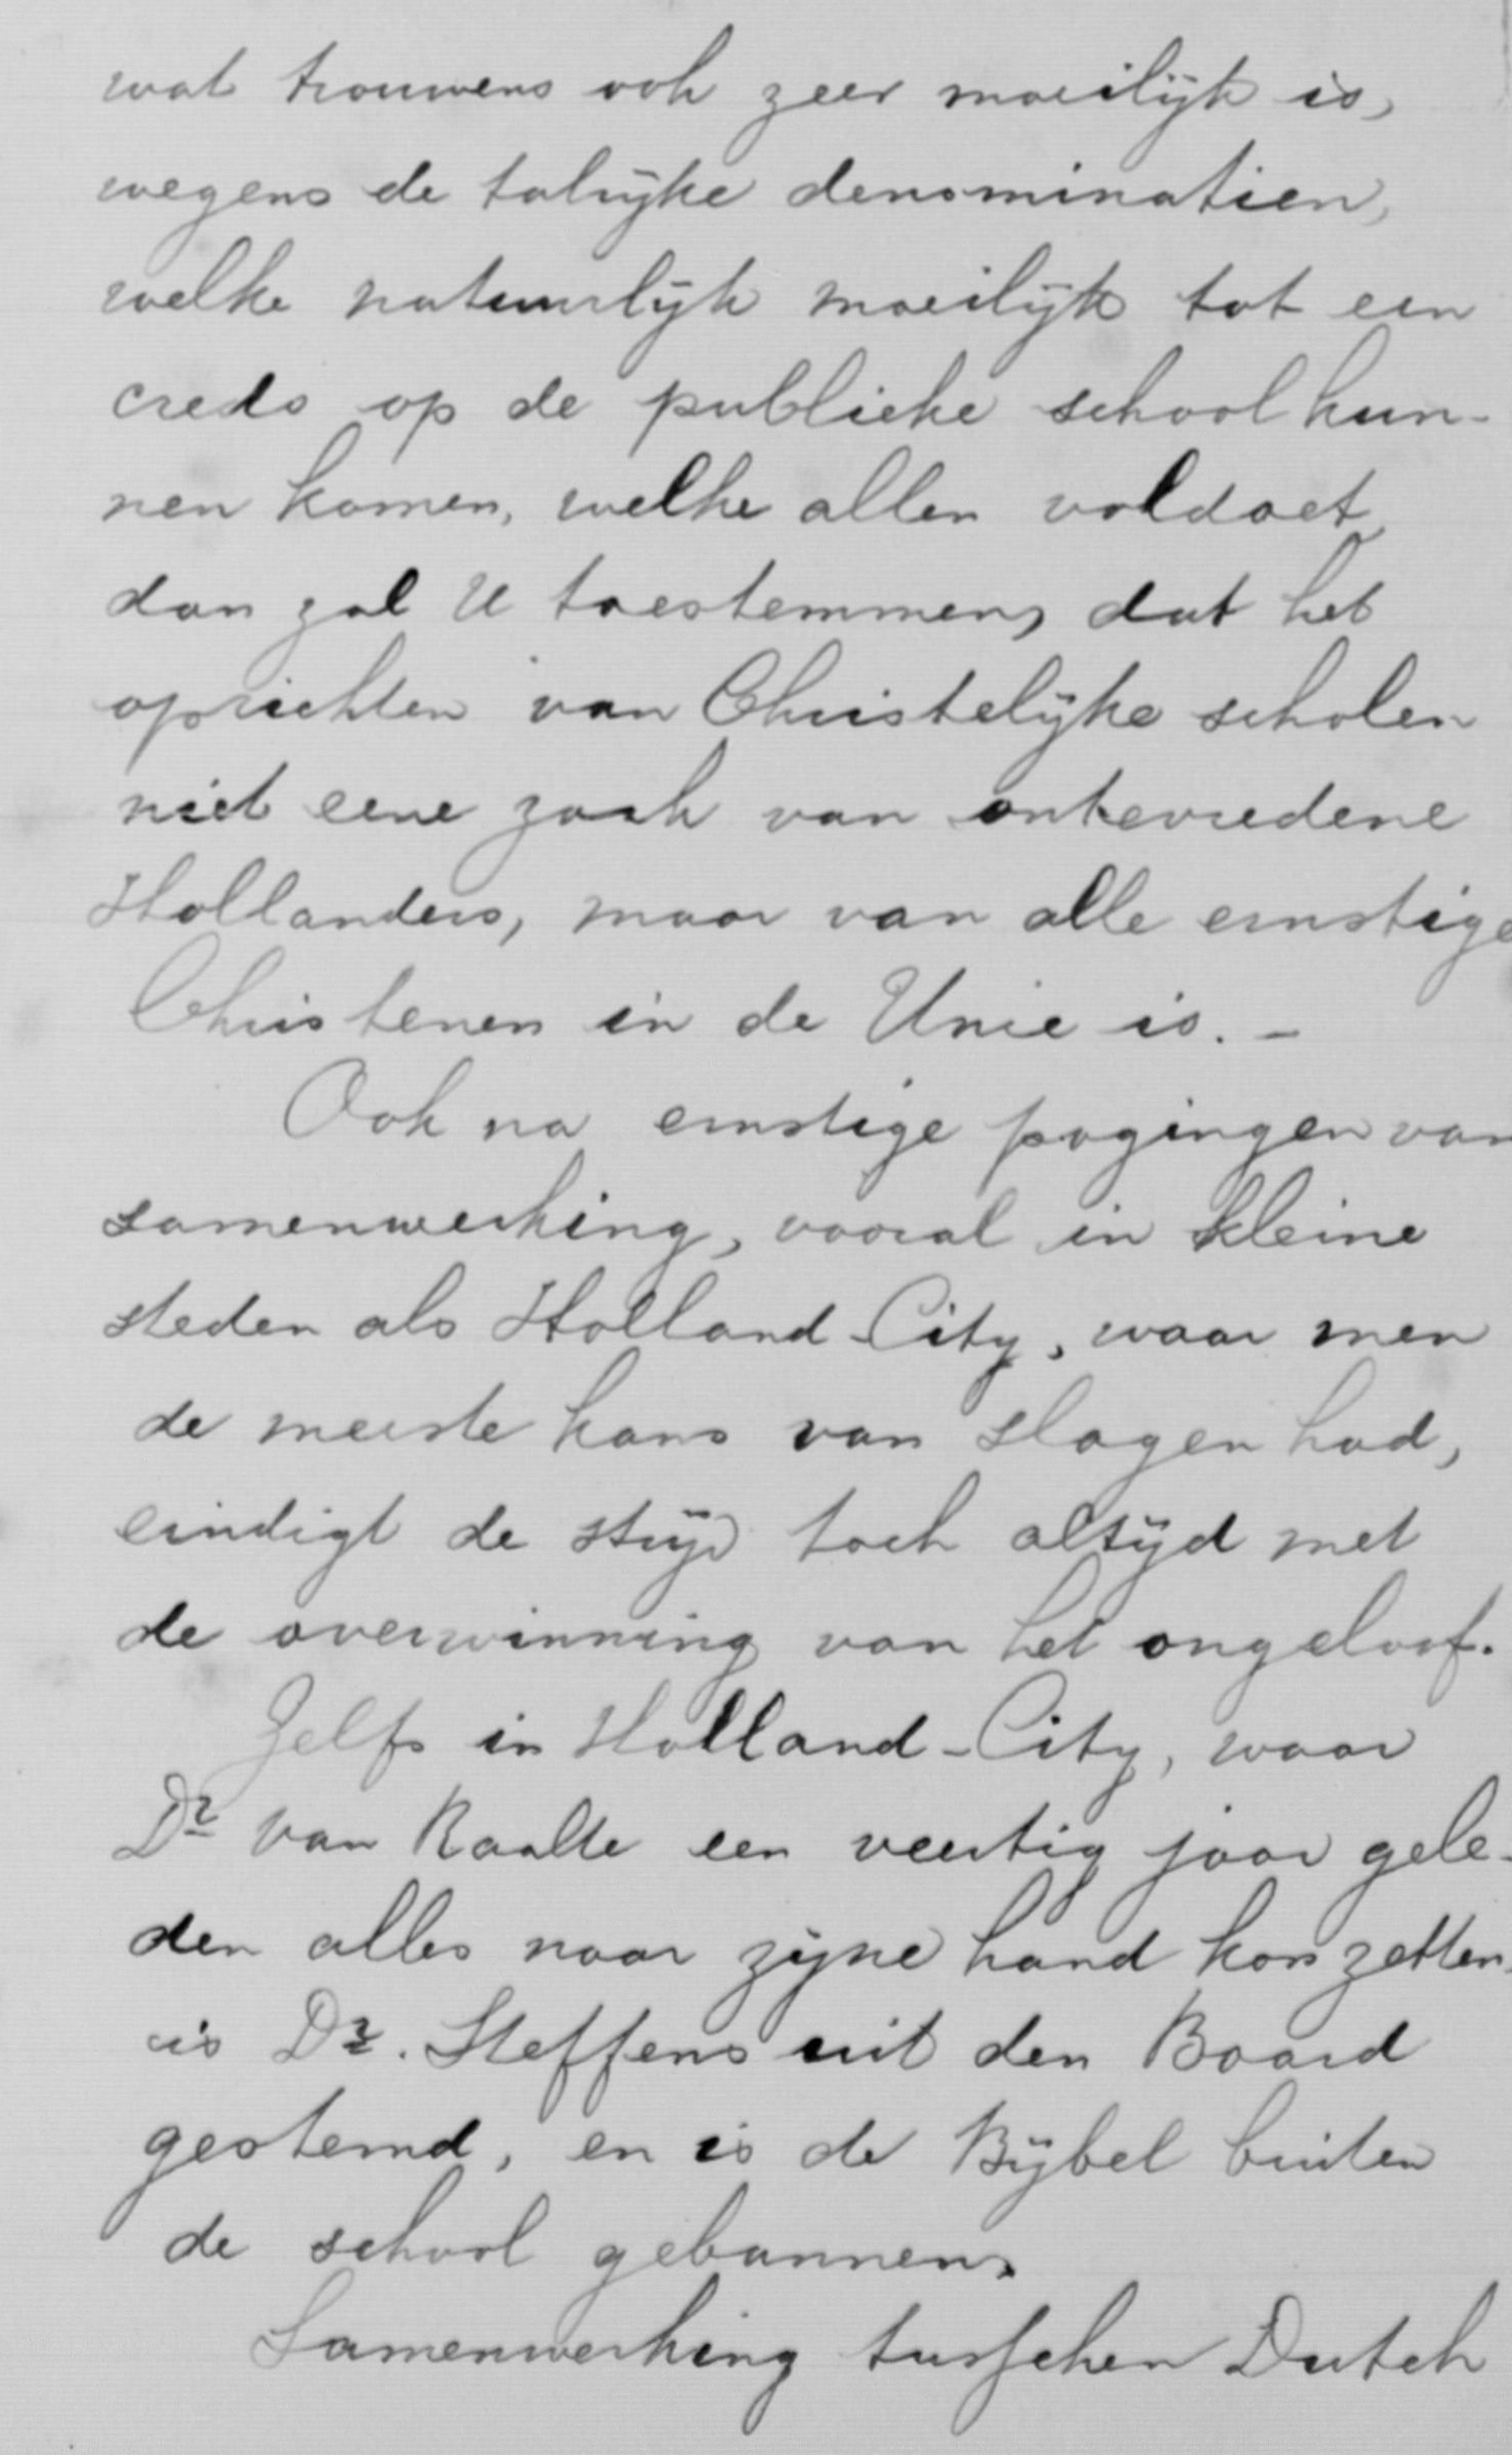 wat trouwens ook zeer moeilijk is,
wegens de talrijke denominatien,
welke natuurlijk moeilijk tot een
credo op de publieke school kun-
nen komen, welke allen voldoet,
dan zal U toestemmen, dat het
oprichten van Christelijke scholen
niet eene zaak van ontevredene
Hollanders, maar van alle ernstige
Christenen in de Unie is. -
Ook na ernstige pogingen van
samenwerking, vooral in kleine
steden als Holland-City, waar men
de meeste kans van slagen had,
eindigt de strijd toch altijd met
de overwinning van het ongeloof.
Zelfs in Holland-City, waar
Dr van Raalte een veertig jaar gele-
den alles naar zijne hand kon zetten,
is Dr. Steffens uit den Board
gestemd, en is de Bijbel buiten
de school gebannen.
Samenwerking tusschen Dutch